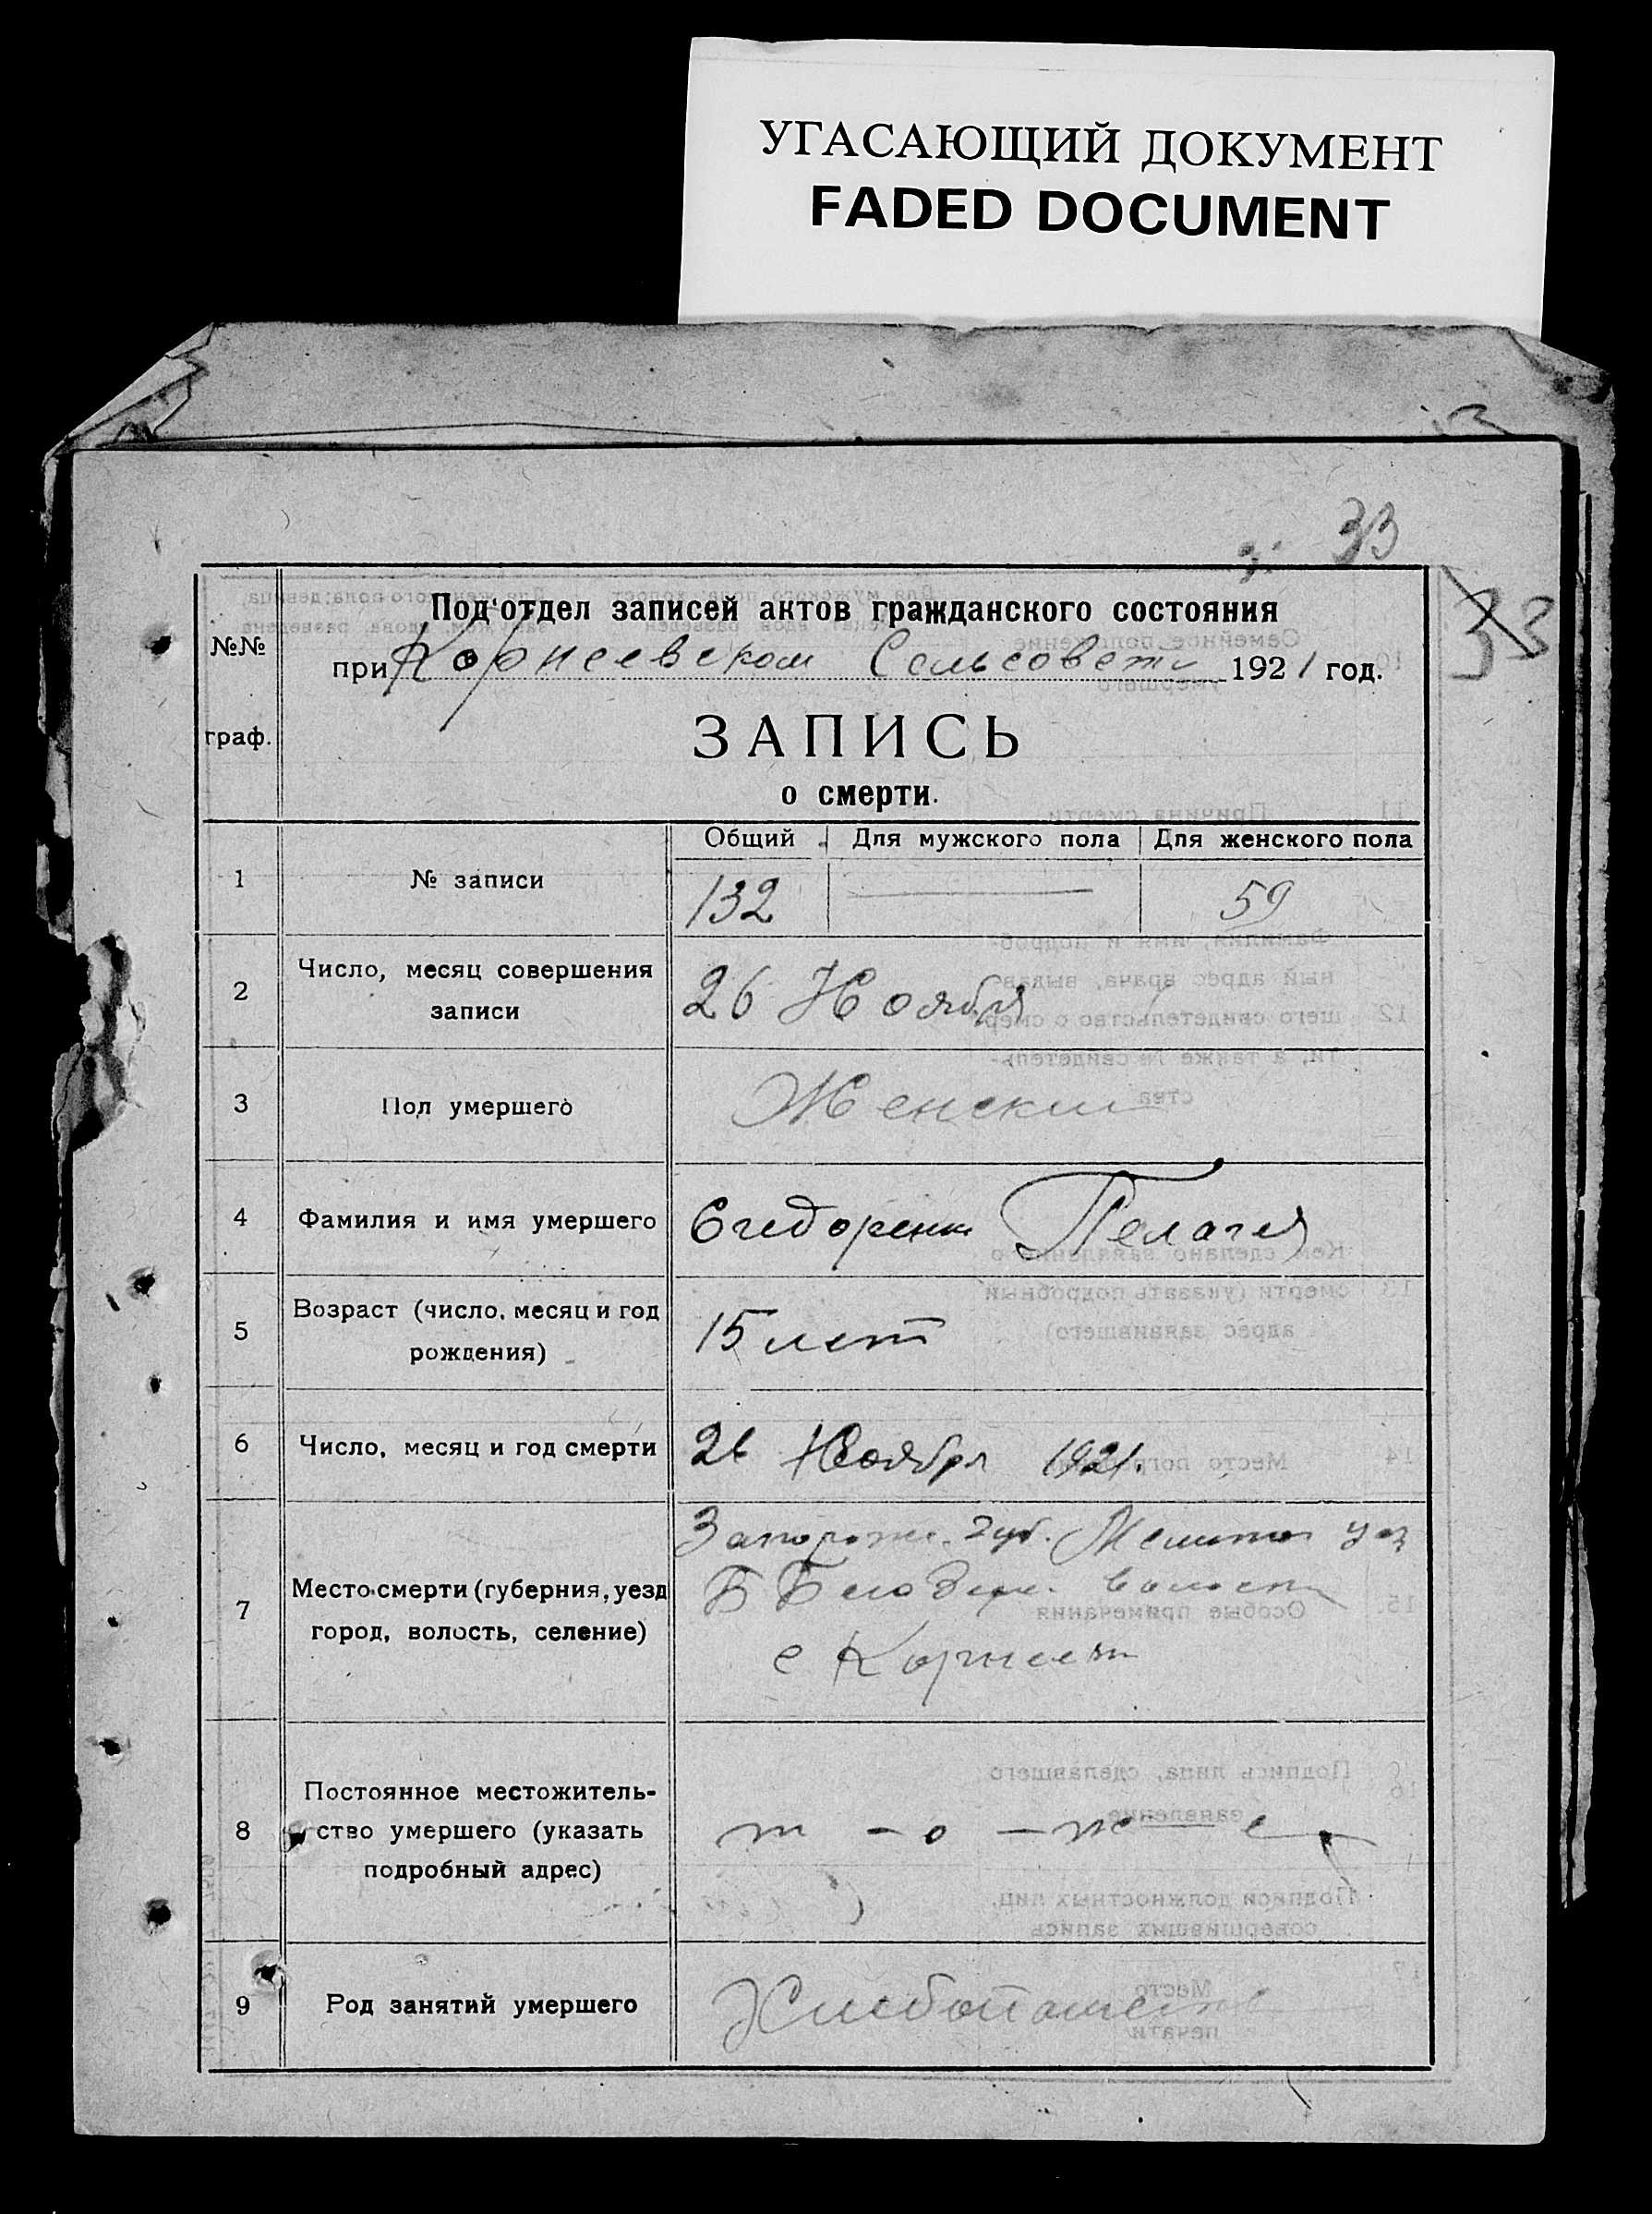 УГАСАЮЩИЙ ДОКУМЕНТ
FADED DOCUMENT
33
33
№№ граф.
Подотдел записей актов гражданского состояния
при Корнеевском Сельсовете 1921 год.
ЗАПИСЬ
о смерти.
Общий Для мужского пола Для женского пола
1 № записи 132 59
2 Число, месяц совершения
записи
26 Ноября
3 Пол умершего Женский
4 Фамилия и имя умершего Сидоренко Пелагея
5 Возраст (число, месяц и год
рождения)
15 лет
6 Число, месяц и год смерти 26 Ноября 1921.
7 Место смерти (губерния, уезд
город, волость, селение)
Запорожс. губ. Мелитоп уез
Б Белозер. волость
с
8 Постоянное местожитель-
ство умершего (указать
подробный адрес)
т-о-же
9 Род занятий умершего Хлебопашец